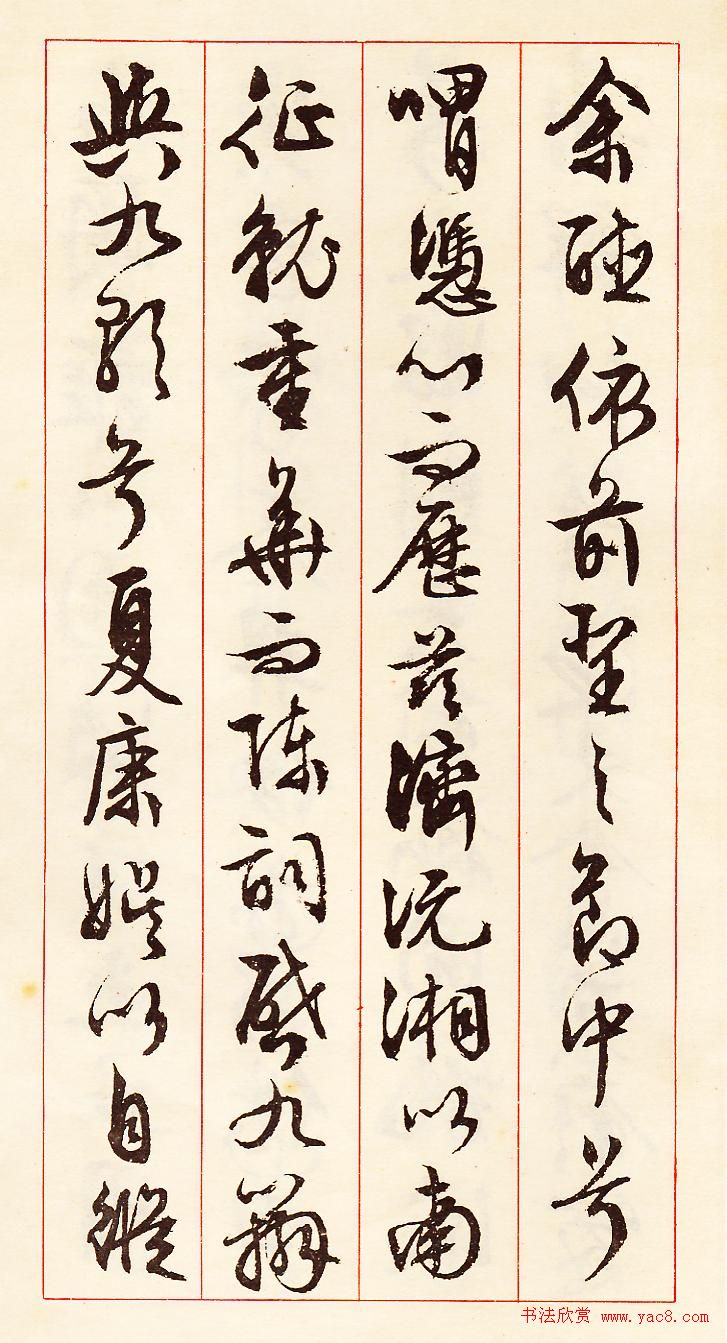 余聽依前聖之節中兮
喟憑心而歷茲濟沅湘以南
征就重華而陳詞啟九辯
與九歌兮夏康娛以自縱
书法欣赏 www.yac8.com